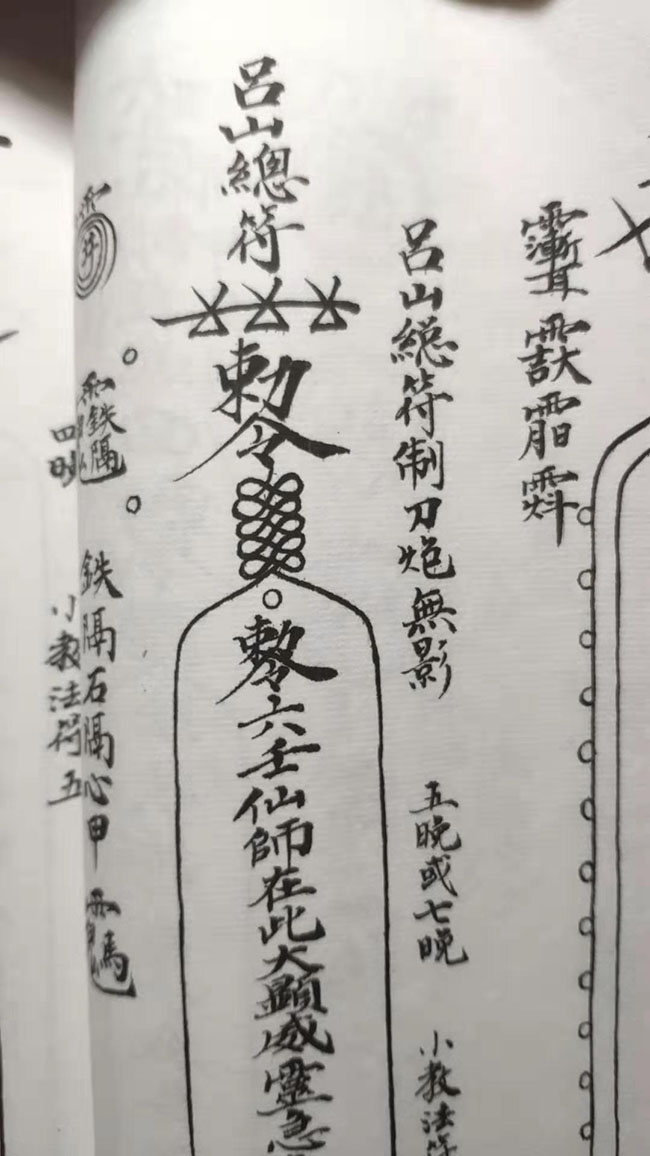 呂山總符
勅令
勅令六壬仙師在此大顯威靈急
呂山總符制刀炮無影
五晚或七晚
小教法符
鉄隔石隔心甲
小教法符五